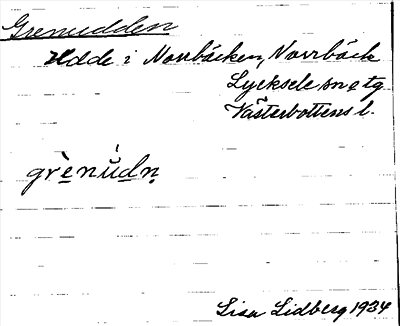 Grenudden
Udde i Norrbäcken, Norrbäck
Lycksele sn o tg
Västerbottens l.
grènúdn̥
Lisa Lidberg 1934